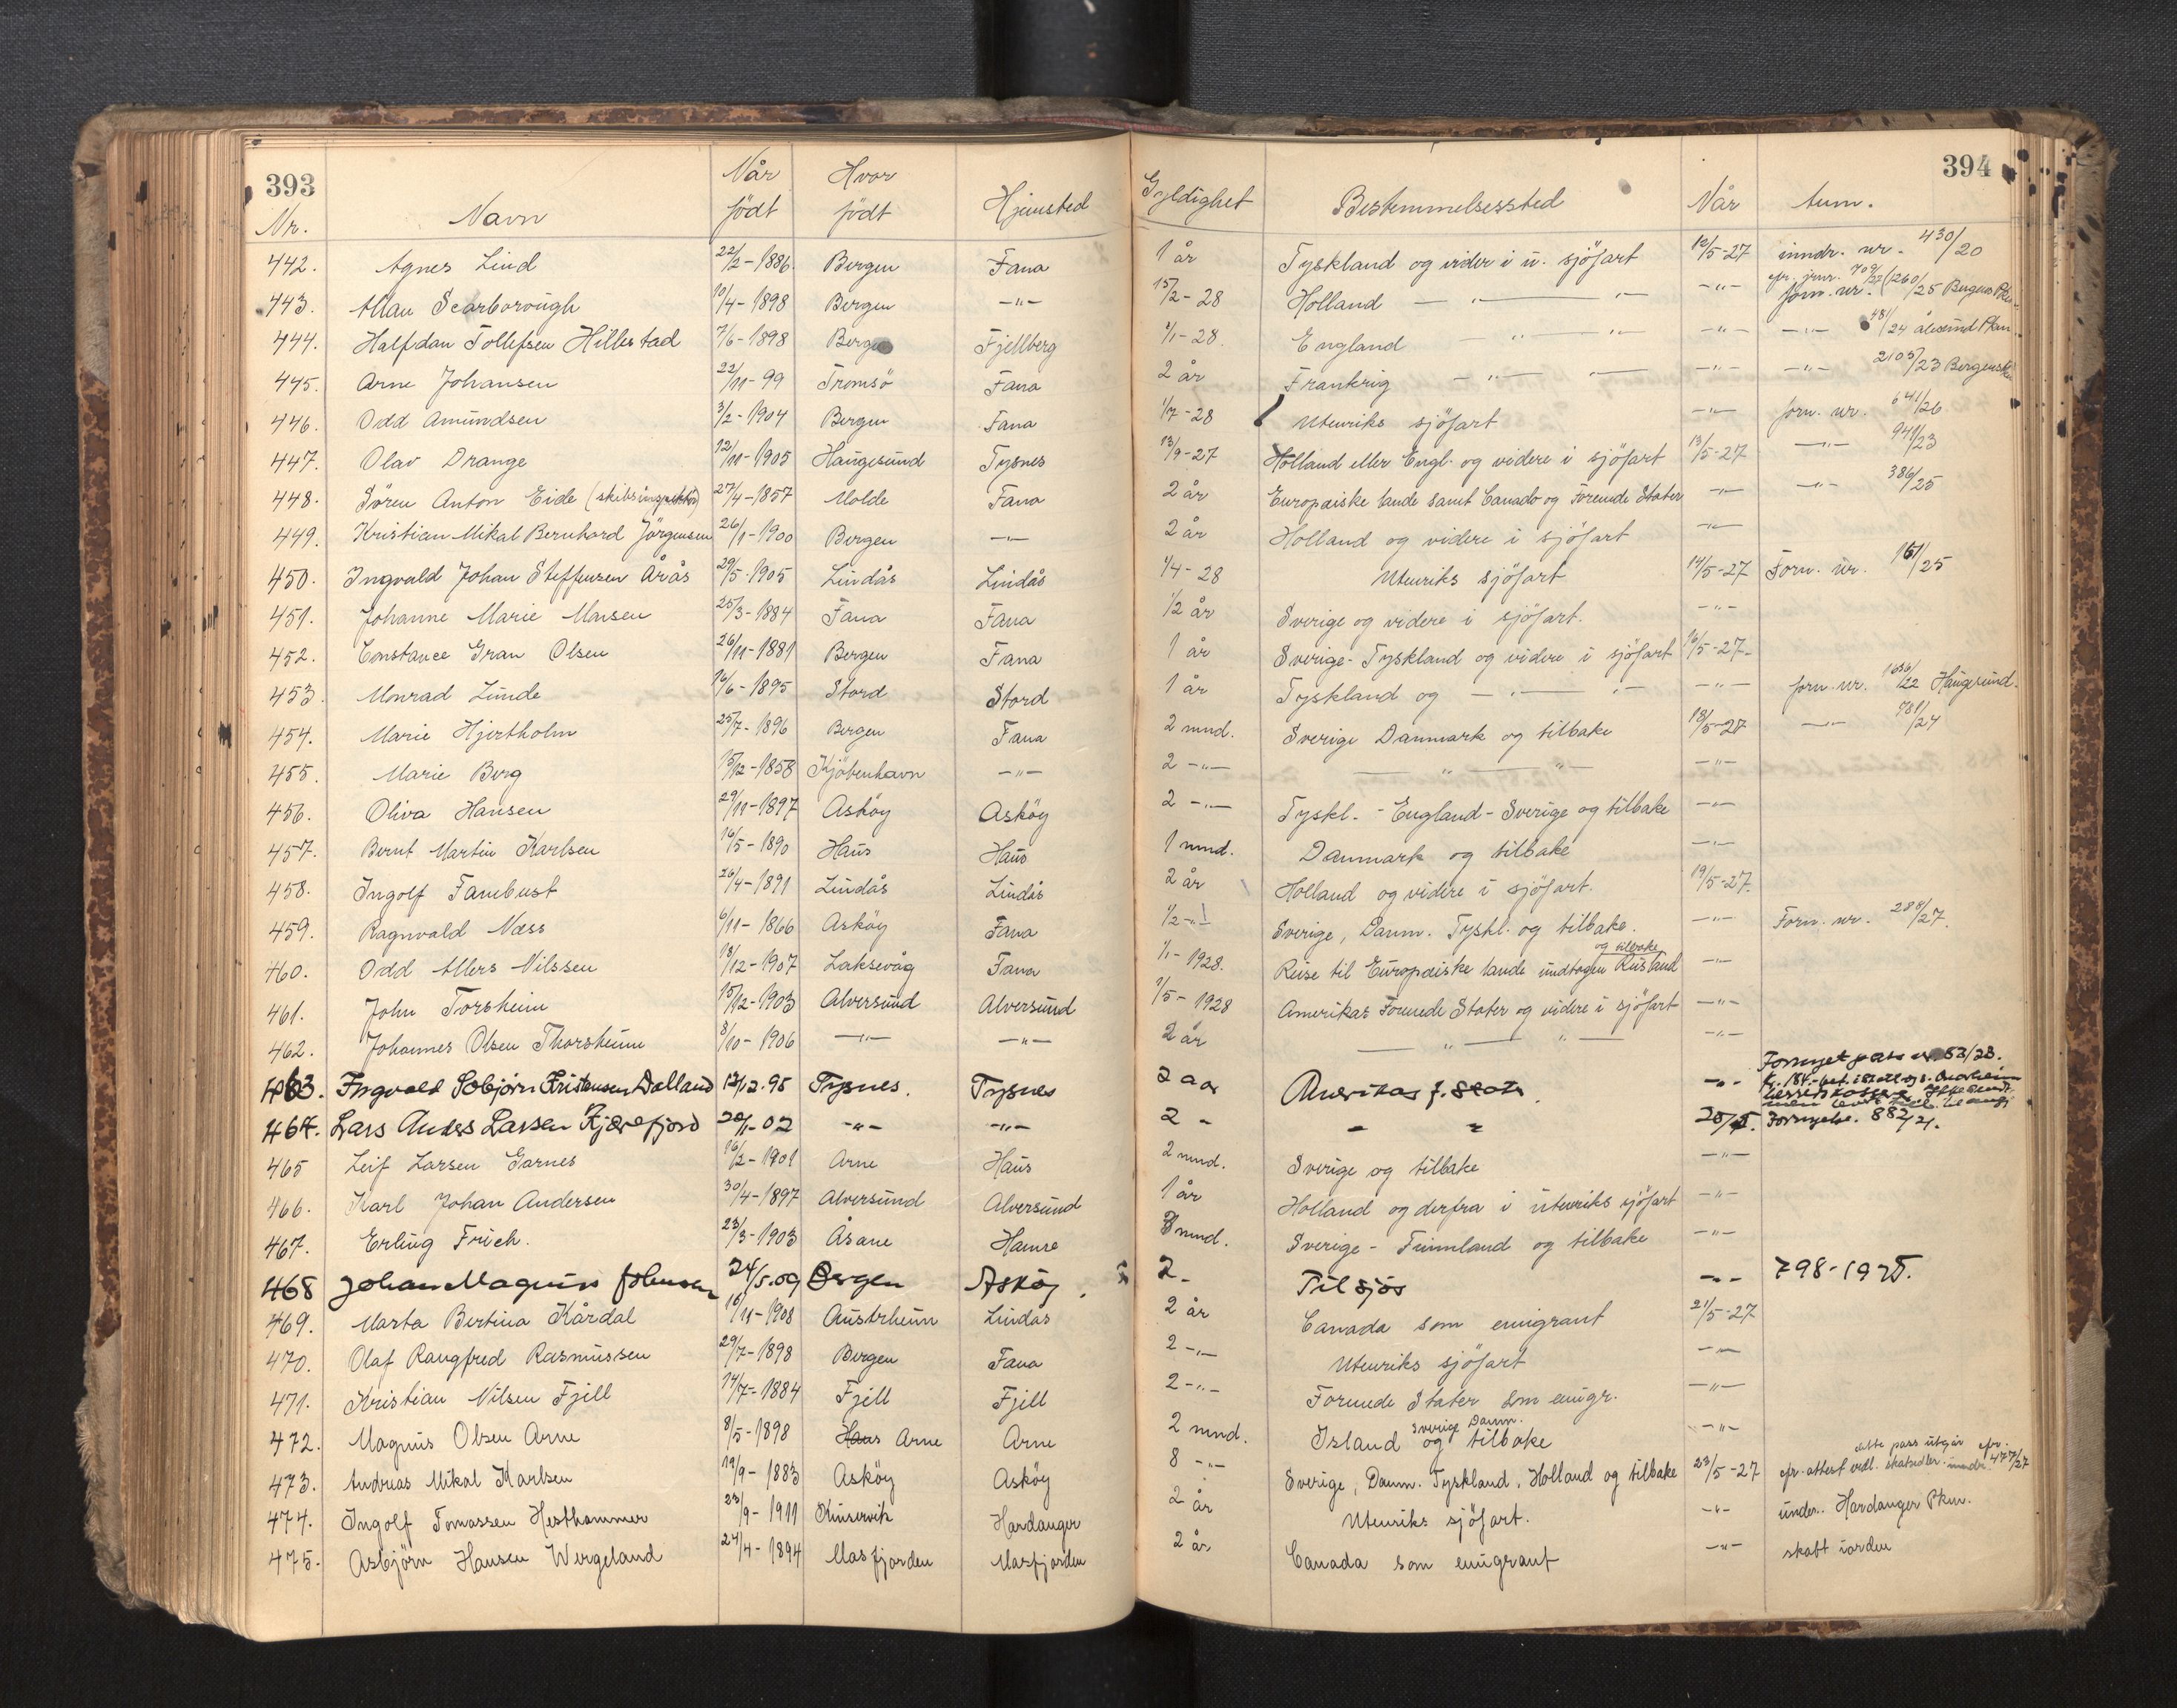 393
394
Nr. Navn Når født Hvor født Hjemsted Gyldighet Bestemmelsessted Når Anm.
442. Agnes Lind 22/2-1886. Bergen Fana 1 år Tyskland og videre i u. sjöfart 12/5-27 inndr. nr. 430/20
443. Allan Scarborough 10/4-1898 Bergen -"- 15/2-28 Holland -"- "- -"- forn. nr. 1260/25 Bergens Pkm.
444. Halfdan Tollefsen Hillestad 7/6-1898 Bergen Fjellberg 1/1-28. England -"- "- -"- -"- 481/24 Ålesund Pkm.
445. Arne Johansen 22/11-99 Tromsö Fana 2 år Frankrig -"- "- -"- -"- 2105/23 Bergens
446. Odd Amundsen 3/2-1904 Bergen Fana 1/7-28 Utenriks sjöfart -"- forn. nr. 641/26
447. Olav Drange 12/11-1905 Haugesund Tysnes 13/9-27 Holland eller Engl. og videre i sjöfart 13/5-27 -"- 941/23
448. Sören Anton Eide (skibsinspektör) 27/4-1857 Molde Fana 2 år Europæiske lande samt Canada og Forenede Stater -"- -"- 386/25
449. Kristian Mikal Bernhard Jörgensen 26/1-1900 Bergen -"- 2 år Holland og videre i sjöfart -"-
450. Ingvald Johan Steffensen Årås 29/5-1905 Lindås Lindås 1/4-28 Utenriks sjöfart 14/5-27 Forn. nr. 161/25
451. Johanne Marie Monsen 25/3-1884 Fana Fana 1/2 år Sverige og videre i sjöfart. -"-
452. Constance Gran Olsen 26/11-1881 Bergen Fana 1 år Sverige-Tyskland og videre i sjöfart 16/5-27-
453. Monrad Linde 16/6-1895 Stord Stord 1 år Tyskland og -"- "- -"- forn. nr. 1636/22 Haugesund.
454. Marie Hjertholm 25/7-1896 Bergen Fana 2 mnd. Sverige Danmark og tilbake 18/5-27 -"- 781/24
455. Marie Berg 15/12-1858 Kjöbenhavn -"- 2 -"- -"- "- -"-
456. Oliva Hansen 29/11-1897 Asköy Asköy 2 -"- Tyskl.-England-Sverige og tilbake -"-
457. Bernt Martin Karlsen 16/5-1890 Haus Haus 1 mnd. Danmark og tilbake -"-
458. Ingolf Fambust 26/4-1891 Lindås Lindås 2 år Holland og videre i sjöfart. 19/5-27.
459. Ragnvald Næss 6/11-1866 Asköy Fana 1/2 -"- Sverige, Danm. Tyskl. og tilbake. -"- Forn. nr. 288/27.
460. Odd Allers Nilssen 18/12-1907 Laksevåg Fana 1/1-1928. Reise til Europæiske lande undtagen Rusland og tilbake -"-
461. John Torsheim 15/12-1903 Alversund Alversund 1/5-1928 Amerikas Forenede Stater og videre i sjöfart -"-
462. Johannes Olsen Thorsheim 8/10-1906 -"- -"- 2 år -"- "- -"-
463. Ingvald Kristensen Dalland 12/12.95 Tysnes. Tysnes 2 aar Amerikas f. Stater. -"- Fornyet pass nr. 53/23.
464. Lars Anders Larsen Kjærefjord 20/1-02 -"- -"- 2 - - " 20/5. Fornyelse. 882/21.
465 Leif Larsen Garnes 16/2-1901 Arne Haus 2 mnd. Sverige og tilbake -"-
466. Karl Johan Andersen 30/4-1897 Alversund Alversund 1 år Holland og derfra i utenriks sjöfart -"-
467. Erling Frich. 23/3-1903 Åsane Hamre mnd. Sverige-Finnland og tilbake -"-
468 Johan Magnus Johnsen 24/5.09 Bergen Asköy. 2- Til sjøs -"- 798-1925.
469. Marta Bertina Kårdal 16/11-1908 Austrheim Lindås 2 år Canada som emigrant 21/5-27
470. Olaf Rangfred Rasmussen 29/7-1898 Bergen Fana 2 -"- Utenriks sjöfart -"-
471. Kristian Nilsen Fjell 14/7-1884 Fjell Fjell 2 -"- Forenede Stater som emigr. -"-
472. Magnus Olsen Arne 8/5-1898 Haus Arne Arne 2 mnd. Island Sverige Danm. og tilbake -"-
473. Andreas Mikal Karlsen 19/9-1883 Asköy Asköy 8 -"- Sverige, Danm. Tyskland, Holland og tilbake 23/5-27 efr. attest vedl. skatsedler. dette pass utgår efr. inndr. 477/27
474. Ingolf Tomassen Hesthammer 23/9-1911 Kinservik Hardanger 2 år Utenriks sjöfart. -"- under. Hardanger Pkm.
475. Asbjörn Hansen Wergeland 24/4-1894 Masfjorden Masfjorden 2 år Canada som emigrant -"- skatt iorden